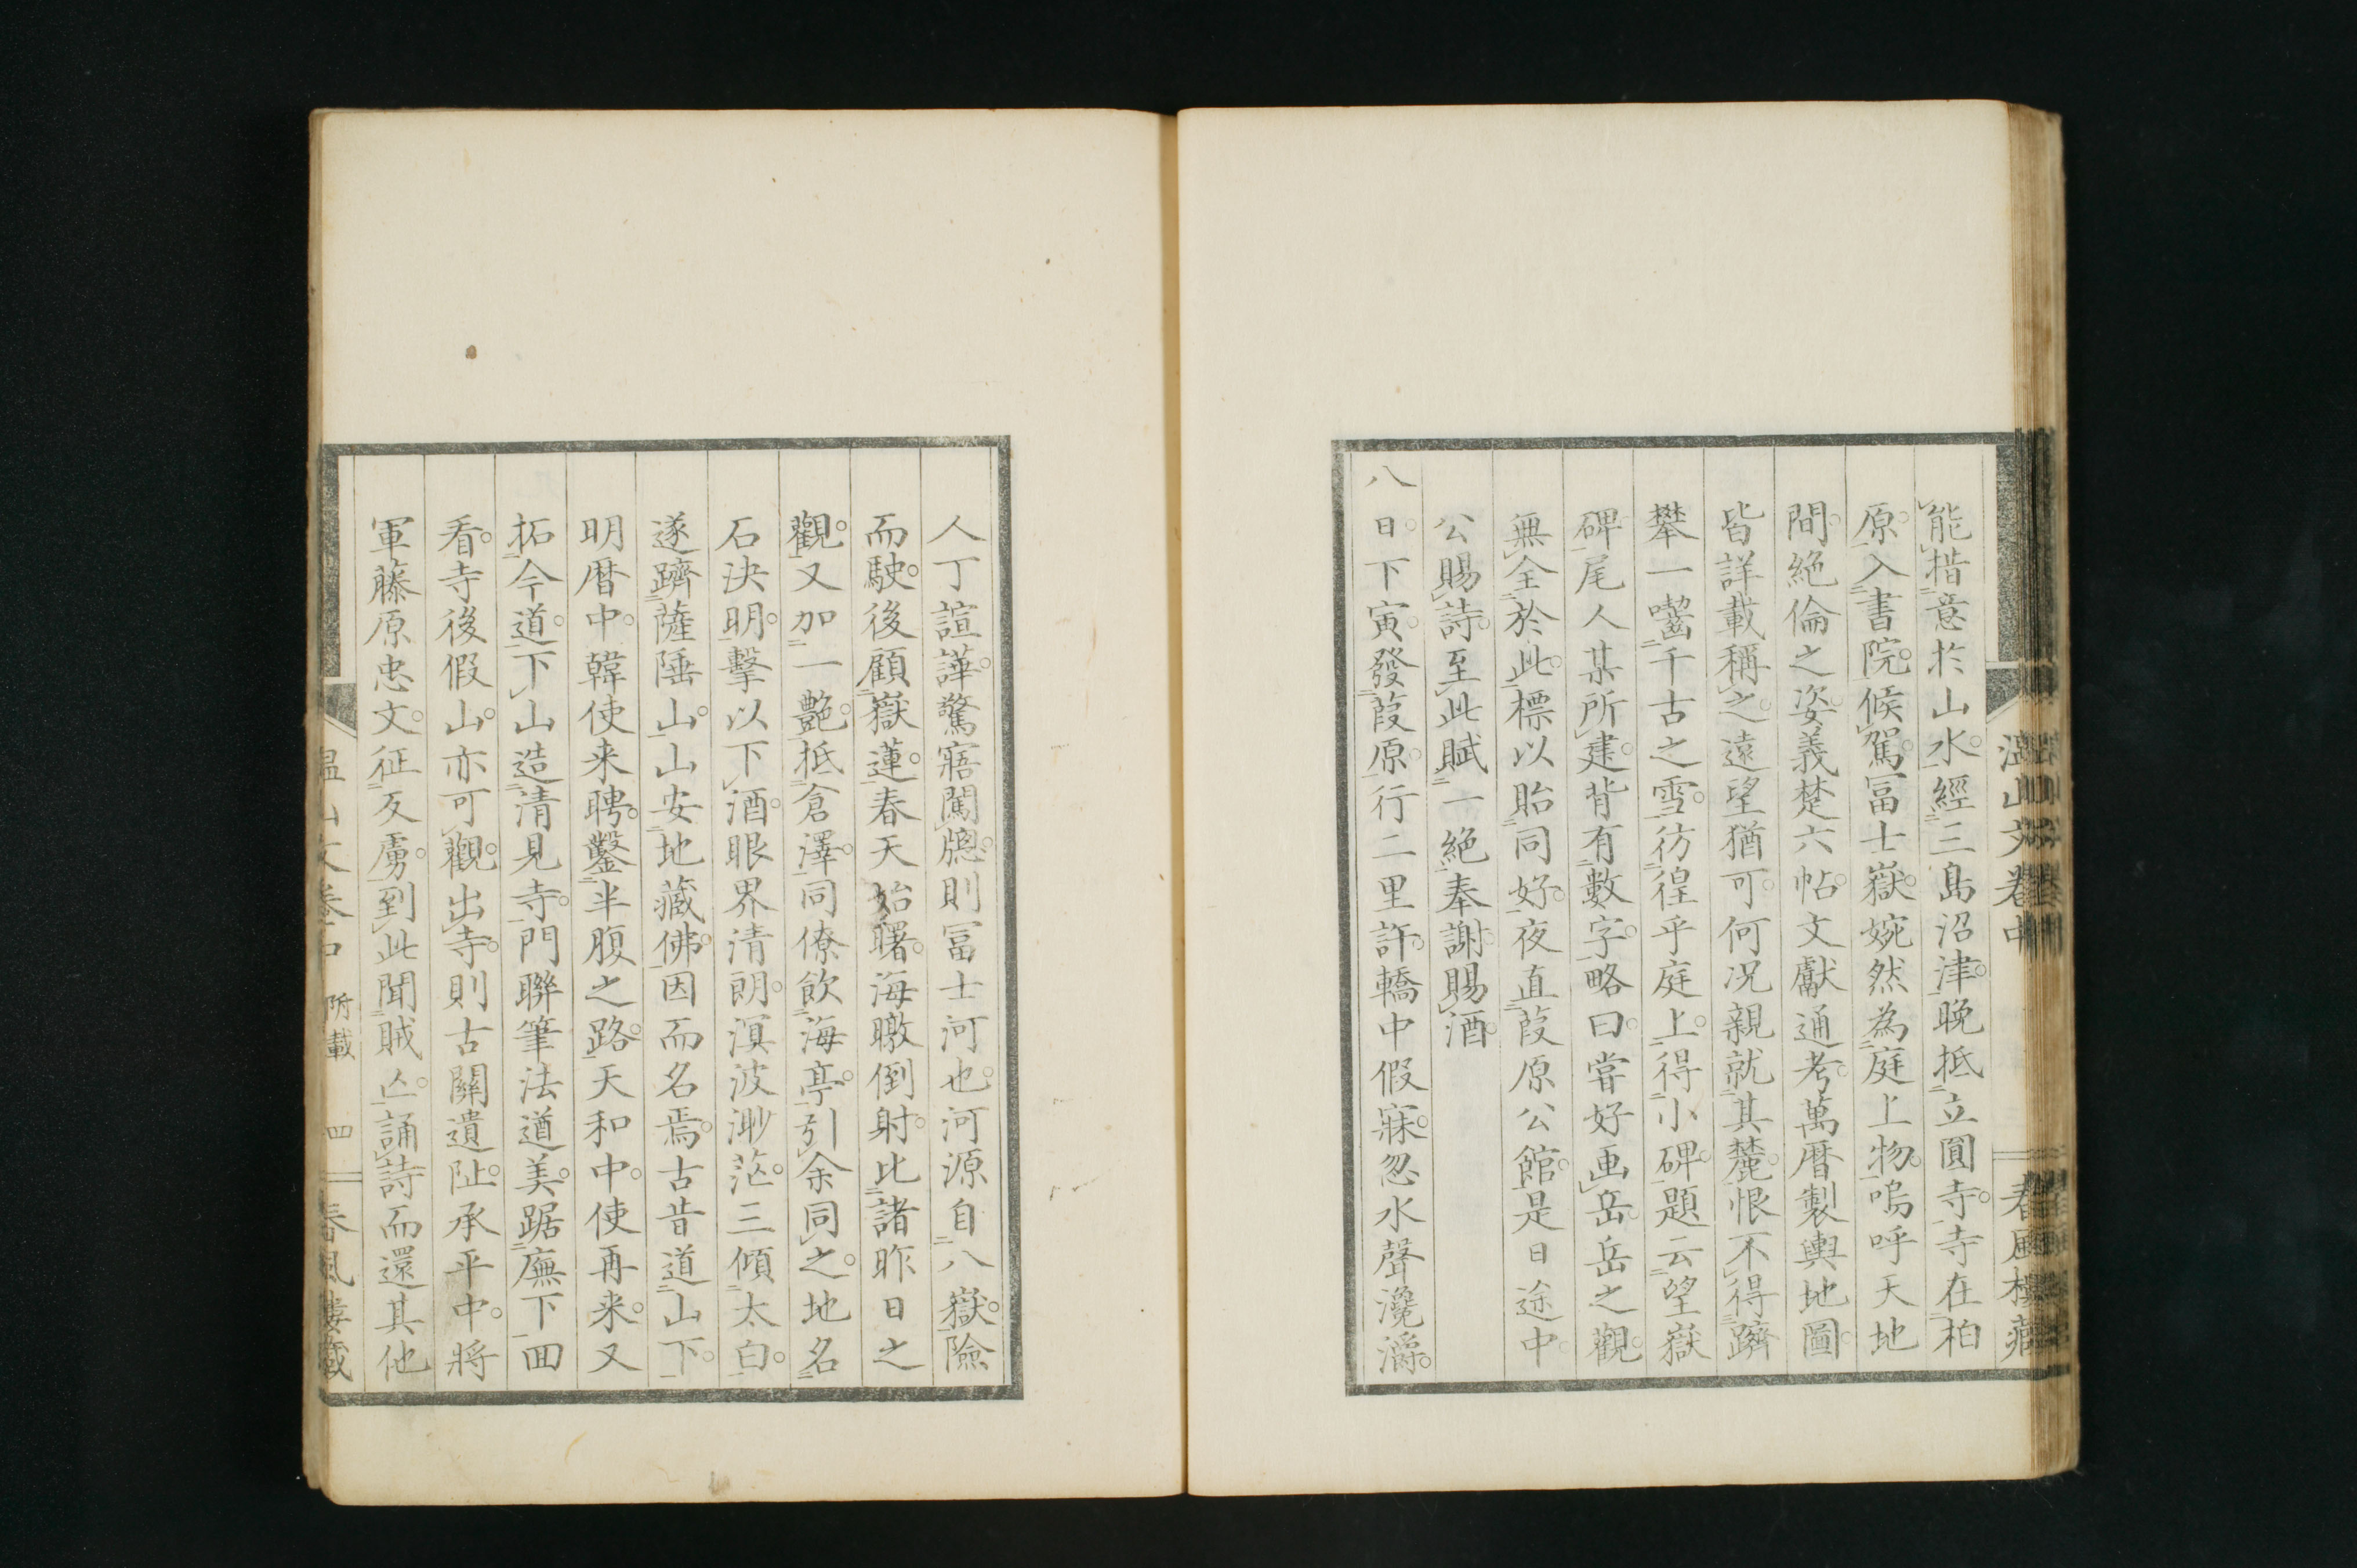 温山文卷中
春風樓藏
能措意於山水。經三島沼津。晚抵立圓寺。寺在柏
原。入書院。候駕冨士嶽。婉然為庭上物。嗚呼天地
間絶倫之姿。義楚六帖。文獻通考。萬暦製輿地圖。
皆詳載稱之。遠望猶可。何况親就其麓。恨不得躋
攀一嚙千古之雪。彷徨乎庭上。得小碑。題云望嶽
碑。尾人某所建。背有數字。略曰。嘗好画岳。岳之觀。
無全於此。標以貽同好。夜直葭原公館。是日途中。
公賜詩。至此賦一絶奉謝賜酒。
八日。下寅。發葭原。行二里許。轎中假寐。忽水聲瀺灂。
人丁諠譁。驚寤闖牕。則冨士河也。河源自八嶽。險
而駛。後顧嶽蓮。春天始曙。海暾倒射。比諸昨日之
觀。又加一艶。抵倉澤。同僚飲海亭。引余同之。地名
石决明。擊以下酒。眼界清朗。溟波渺茫。三傾太白。
遂躋薩陲山。山安地藏佛。因而名焉。古昔道山下。
明暦中。韓使来聘。鑿半腹之路。天和中。使再来。又
拓今道。下山造清見寺。門聯筆法遒美。踞廡下回
看。寺後假山。亦可觀。出寺。則古關遺阯。承平中。將
軍藤原忠文。征反虜。到此聞賊亾。誦詩而還。其他
温山文卷中 附載 四
春風樓藏